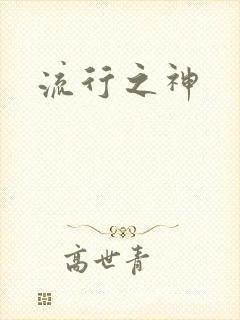 流行之神
高世青